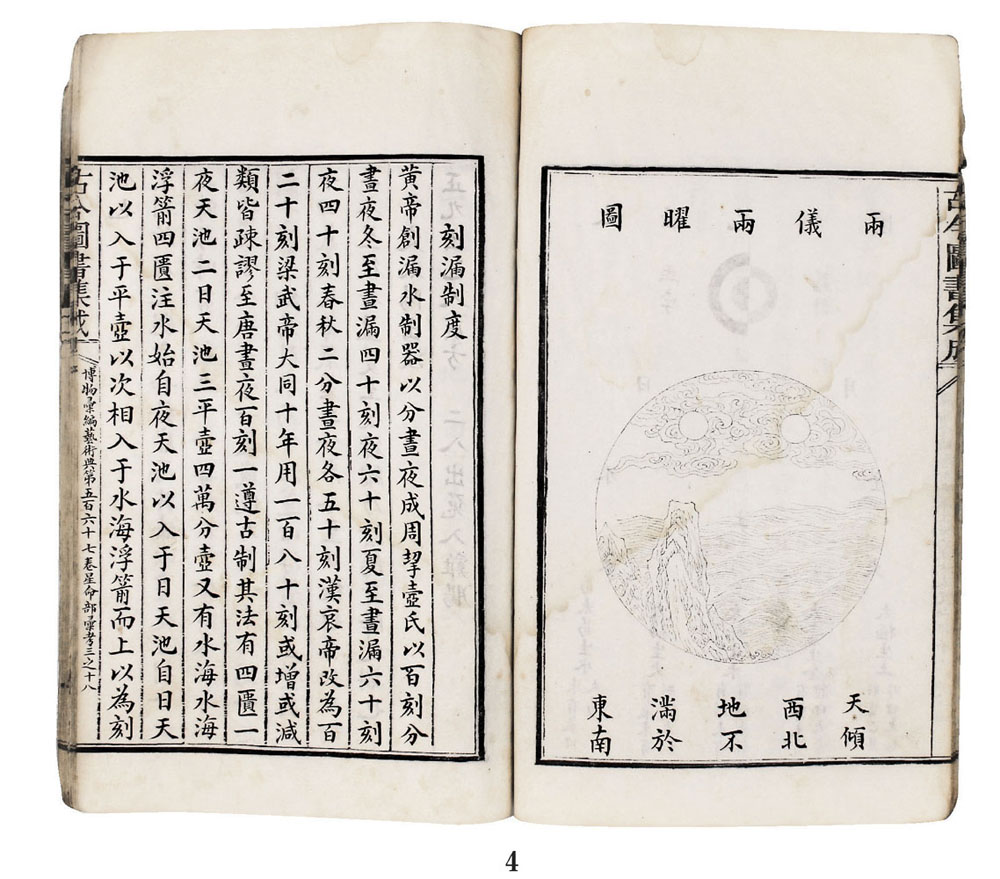 古今圖書集成
兩儀兩曜圖
天傾
西北
地不
滿於
東南
刻漏制度
黃帝創漏水制器以分晝夜成周挈壺氏以百刻分
晝夜冬至晝漏四十刻夜六十刻夏至晝漏六十刻
夜四十刻春秋二分晝夜各五十刻漢哀帝改為百
二十刻梁武帝大同十年用一百八十刻或增或減
類皆疎謬至唐晝夜百刻一遵古制其法有四匱一
夜天池二日天池三平壺四萬分壺又有水海水海
浮箭四匱注水始自夜天池以入于日天池自日天
池以入于平壺以次相入于水海浮箭而上以為刻
古今圖書集成
博物彙編藝術典第五百六十七卷星命部彙考三之十八
4